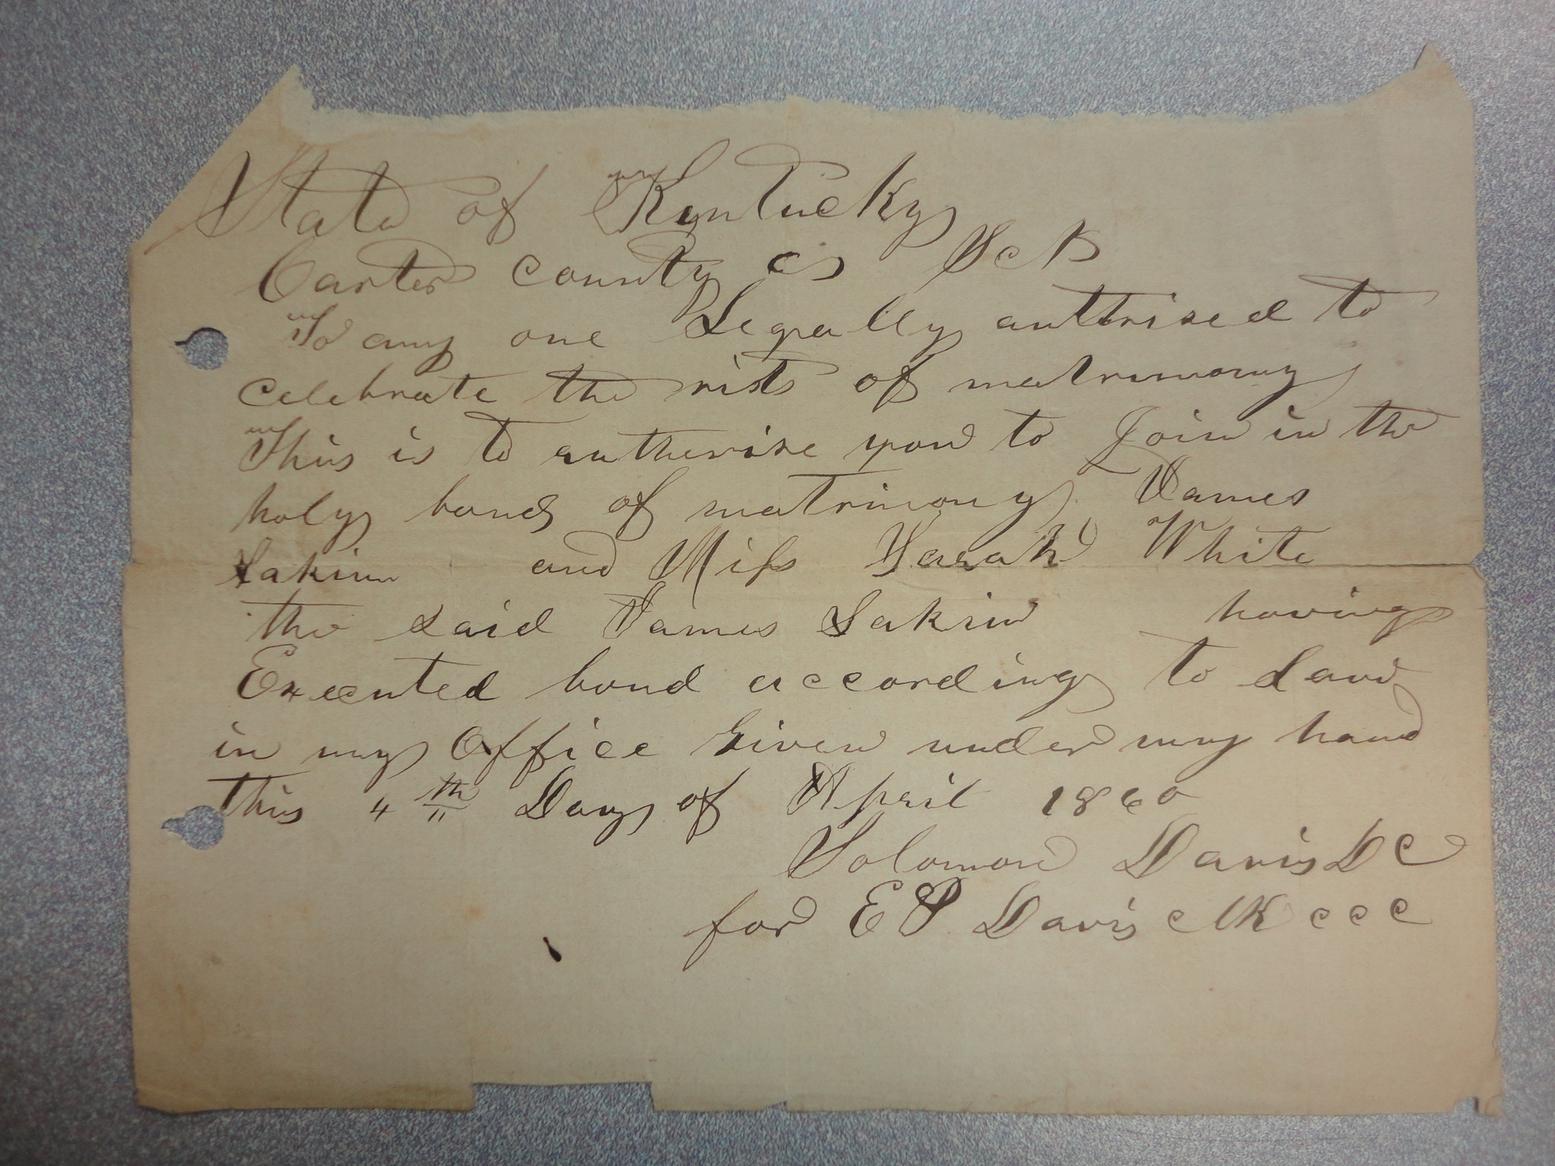 State of Kentucky
Carter county ss Sct
To any one Legally authrised to
celebrate the rits of matrimony
This is to autherise you to Join in the
holy bands of matrimony James
Lakin and Miss Sarah White
the said James Lakin having
Executed bond according to Law
in my Office Given under my hand
this 4th Day of April 1860
Solomon Davis DC
for E P Davis clk ccc